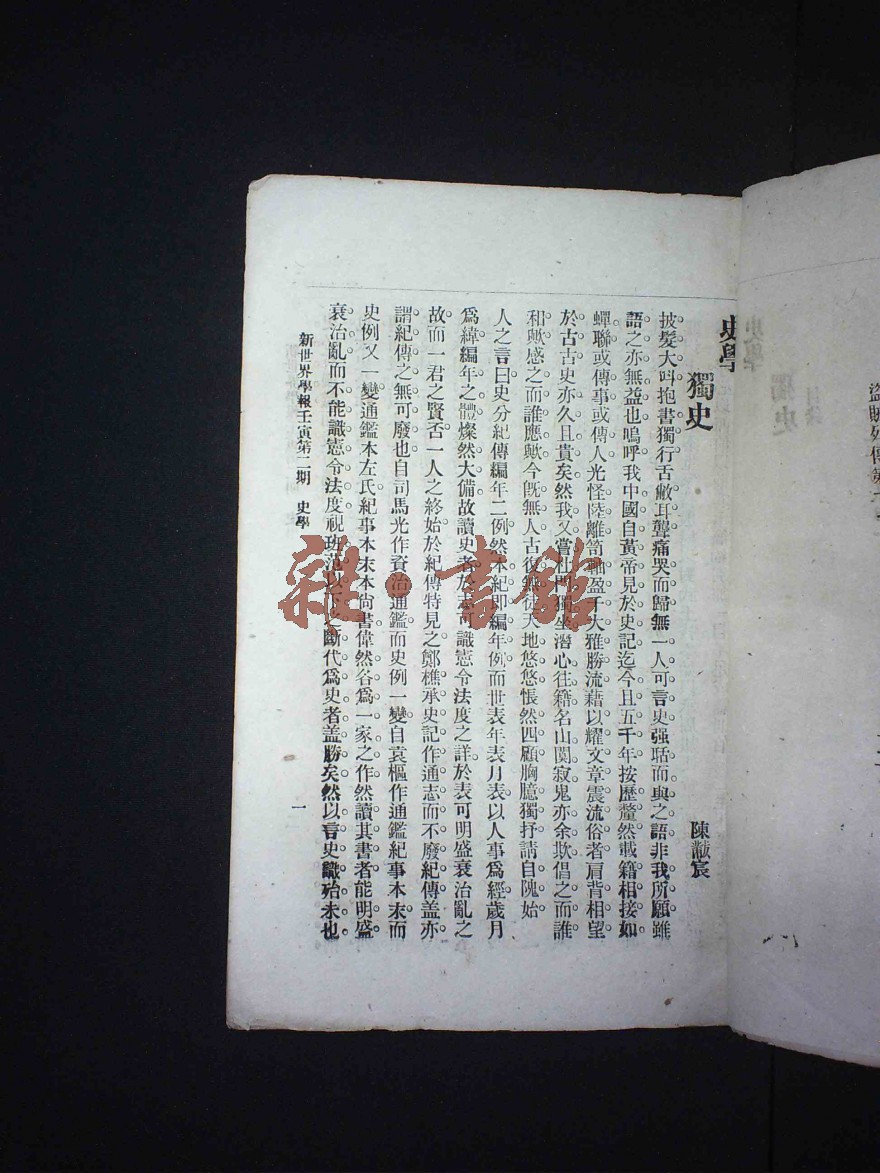 史學
獨史
陳黻宸
披髮大叫抱書獨行舌敝耳聾痛哭而歸無一人可言史强聒而與之語非我所願雖
語之亦無益也嗚呼我中國自黃帝見於史記迄今且五千年按歷釐然載籍相接如
蟬聯或傳事或傳人光怪陸離笥軸盈千大雅勝流藉以耀文章震流俗者肩背相望
於古古史亦久且貴矣然我又嘗杜門獨坐潛心往籍名山闃寂鬼亦余欺倡之而誰
和歟感之而誰應歟今旣無人古復無徒天地悠悠悵然四顧胸臆獨抒請自隗始
人之言曰史分紀傳編年二例然本紀卽編年例而世表年表月表以人事爲經歲月
爲緯編年之體燦然大備故讀史者於志可識憲令法度之詳於表可明盛衰治亂之
故而一君之賢否一人之終始於紀傳特見之鄭樵承史記作通志而不廢紀傳蓋亦
謂紀傳之無可廢也自司馬光作資治通鑑而史例一變自袁樞作通鑑紀事本末而
史例又一變通鑑本左氏紀事本末本尙書偉然各爲一家之作然讀其書者能明盛
衰治亂而不能識憲令法度視班范以下之斷代爲史者蓋勝矣然以言史識殆未也
新世界學報壬寅第二期 史學
一
史學
獨史
雜·書館